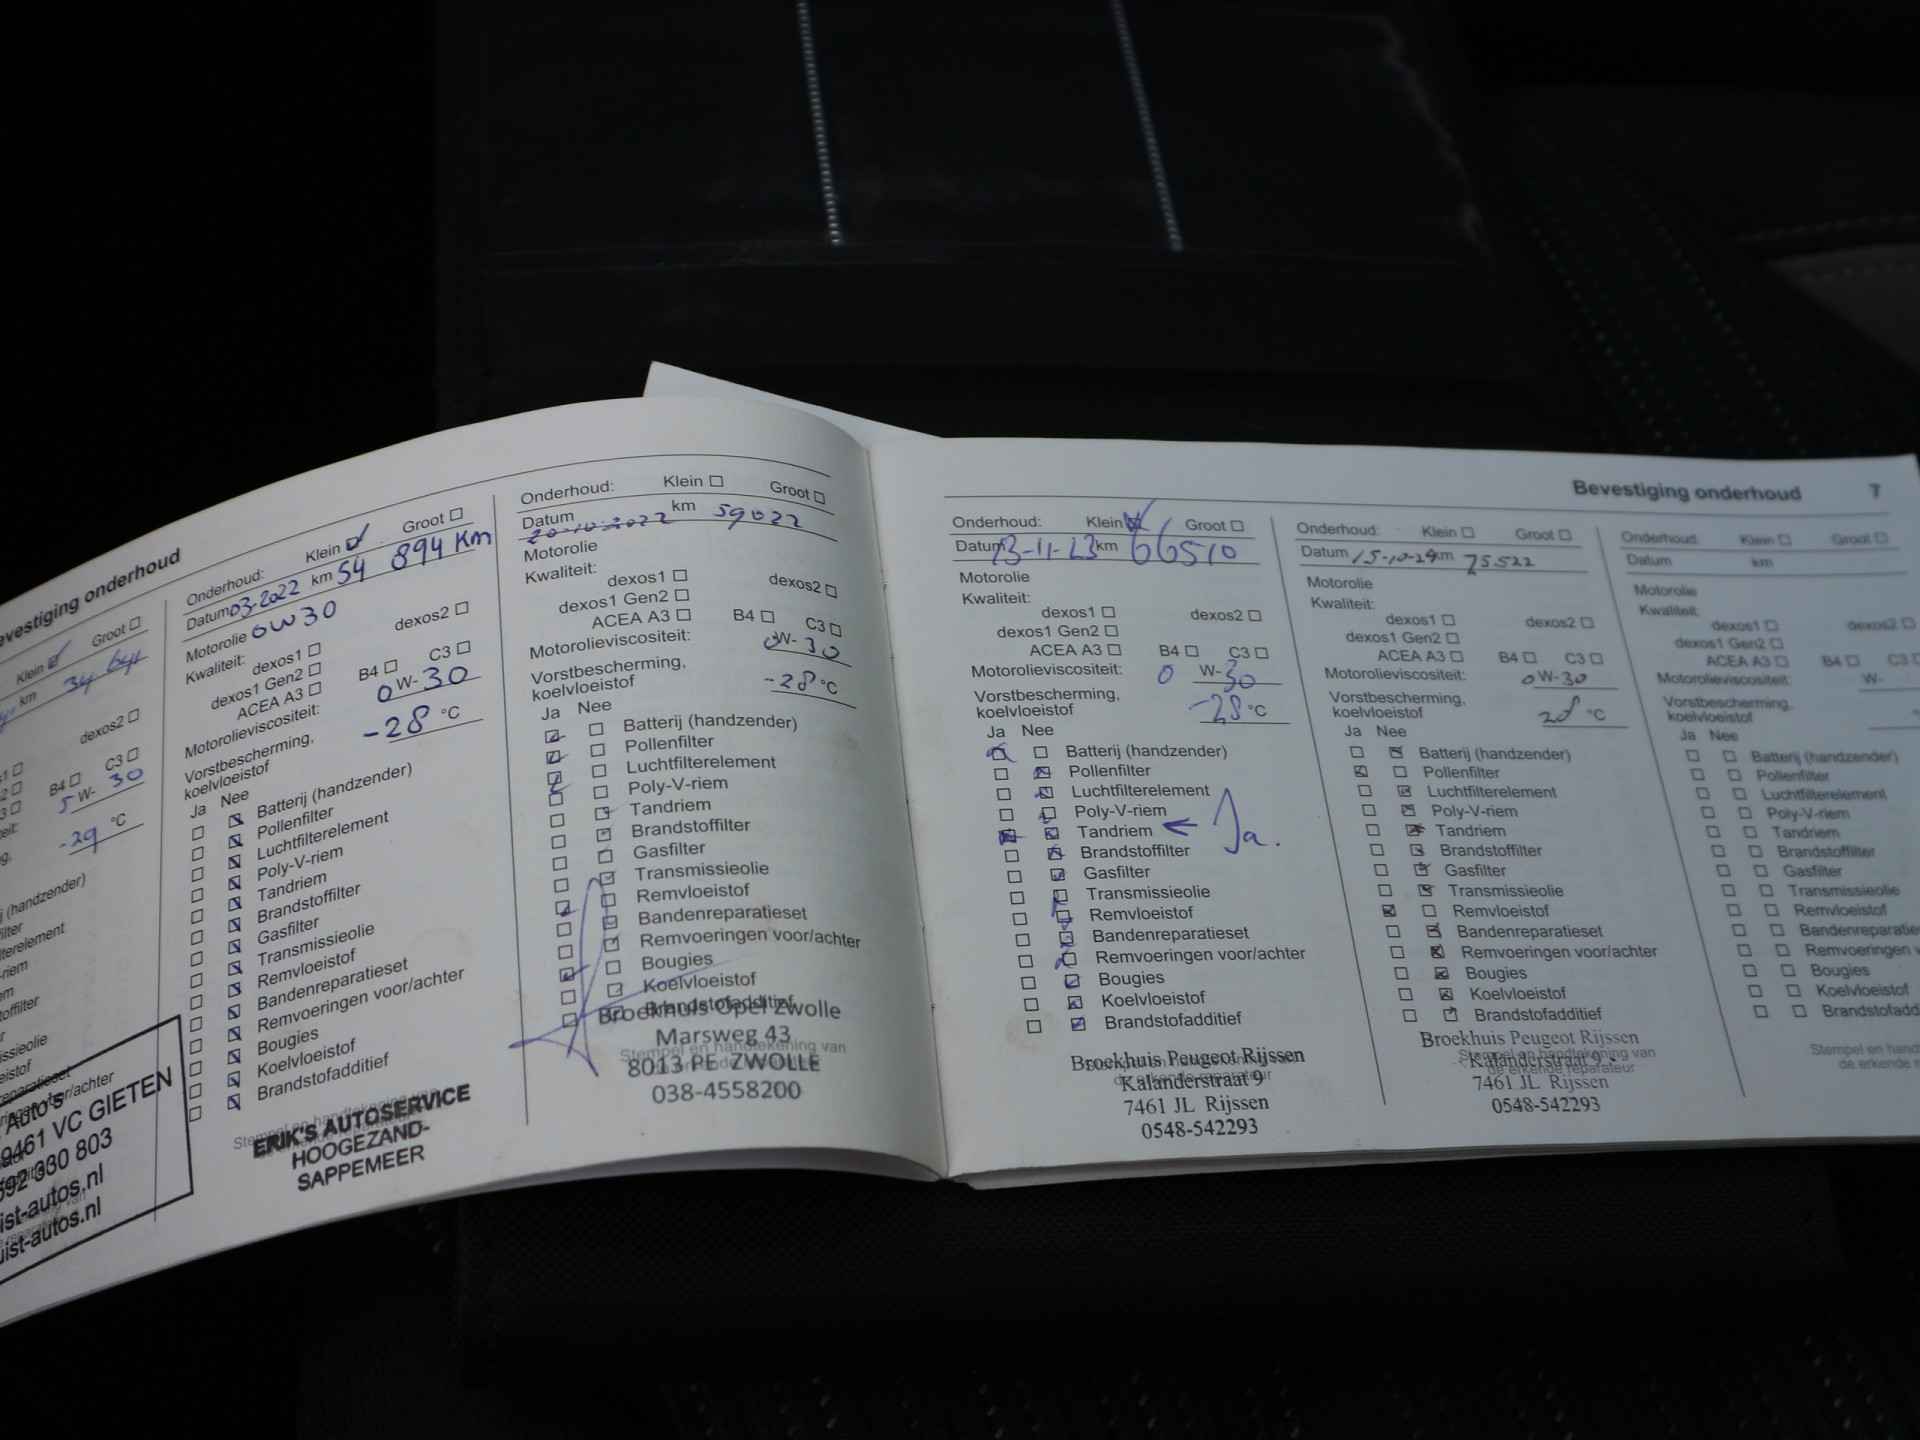 Bevestiging onderhoud
Klein Groot
km 34 641
dexos2
B4 C3
5 W- 30
-29 °C
9461 VC GIETEN
Auto's
330 803
ist-autos.nl
uist-autos.nl
Onderhoud: Klein Groot
Datum 03-2022 km 54 894 Km
Motorolie 0W30
Kwaliteit:
dexos1 dexos2
dexos1 Gen2
ACEA A3 B4 C3
Motorolieviscositeit: 0 W- 30
Vorstbescherming,
koelvloeistof -28 °C
Ja Nee
Batterij (handzender)
Pollenfilter
Luchtfilterelement
Poly-V-riem
Tandriem
Brandstoffilter
Gasfilter
Transmissieolie
Remvloeistof
Bandenreparatieset
Remvoeringen voor/achter
Bougies
Koelvloeistof
Brandstofadditief
ERIK'S AUTOSERVICE
HOOGEZAND-
SAPPEMEER
Onderhoud: Klein Groot
Datum 20-10-2022 km 59022
Motorolie
Kwaliteit:
dexos1 dexos2
dexos1 Gen2
ACEA A3 B4 C3
Motorolieviscositeit: 0W-30
Vorstbescherming,
koelvloeistof -28 °C
Ja Nee
Batterij (handzender)
Pollenfilter
Luchtfilterelement
Poly-V-riem
Tandriem
Brandstoffilter
Gasfilter
Transmissieolie
Remvloeistof
Bandenreparatieset
Remvoeringen voor/achter
Bougies
Koelvloeistof
Brandstofadditief
Broekhuis Opel Zwolle
Marsweg 43
Stempel en handtekening van
8013 PE ZWOLLE
038-4558200
Bevestiging onderhoud 7
Onderhoud: Klein Groot
Datum 13-11-23 km 66510
Motorolie
Kwaliteit:
dexos1 dexos2
dexos1 Gen2
ACEA A3 B4 C3
Motorolieviscositeit: 0 W-30
Vorstbescherming,
koelvloeistof -28 °C
Ja Nee
Batterij (handzender)
Pollenfilter
Luchtfilterelement
Poly-V-riem
Tandriem ← Ja.
Brandstoffilter
Gasfilter
Transmissieolie
Remvloeistof
Bandenreparatieset
Remvoeringen voor/achter
Bougies
Koelvloeistof
Brandstofadditief
Broekhuis Peugeot Rijssen
Kalanderstraat 9
7461 JL Rijssen
0548-542293
Onderhoud: Klein Groot
Datum 15-10-24 km 75522
Motorolie
Kwaliteit:
dexos1 dexos2
dexos1 Gen2
ACEA A3 B4 C3
Motorolieviscositeit: 0 W-30
Vorstbescherming,
koelvloeistof 28 °C
Ja Nee
Batterij (handzender)
Pollenfilter
Luchtfilterelement
Poly-V-riem
Tandriem
Brandstoffilter
Gasfilter
Transmissieolie
Remvloeistof
Bandenreparatieset
Remvoeringen voor/achter
Bougies
Koelvloeistof
Brandstofadditief
Broekhuis Peugeot Rijssen
Stempel en handtekening van
Kalanderstraat 9
de erkende reparateur
7461 JL Rijssen
0548-542293
Onderhoud: Klein Groot
Datum km
Motorolie
Kwaliteit:
dexos1 dexos2
dexos1 Gen2
ACEA A3 B4 C3
Motorolieviscositeit: W-
Vorstbescherming,
koelvloeistof
Ja Nee
Batterij (handzender)
Pollenfilter
Luchtfilterelement
Poly-V-riem
Tandriem
Brandstoffilter
Gasfilter
Transmissieolie
Remvloeistof
Bandenreparatie
Remvoeringen v
Bougies
Koelvloeistof
Brandstofadd
Stempel en hand
de erkende